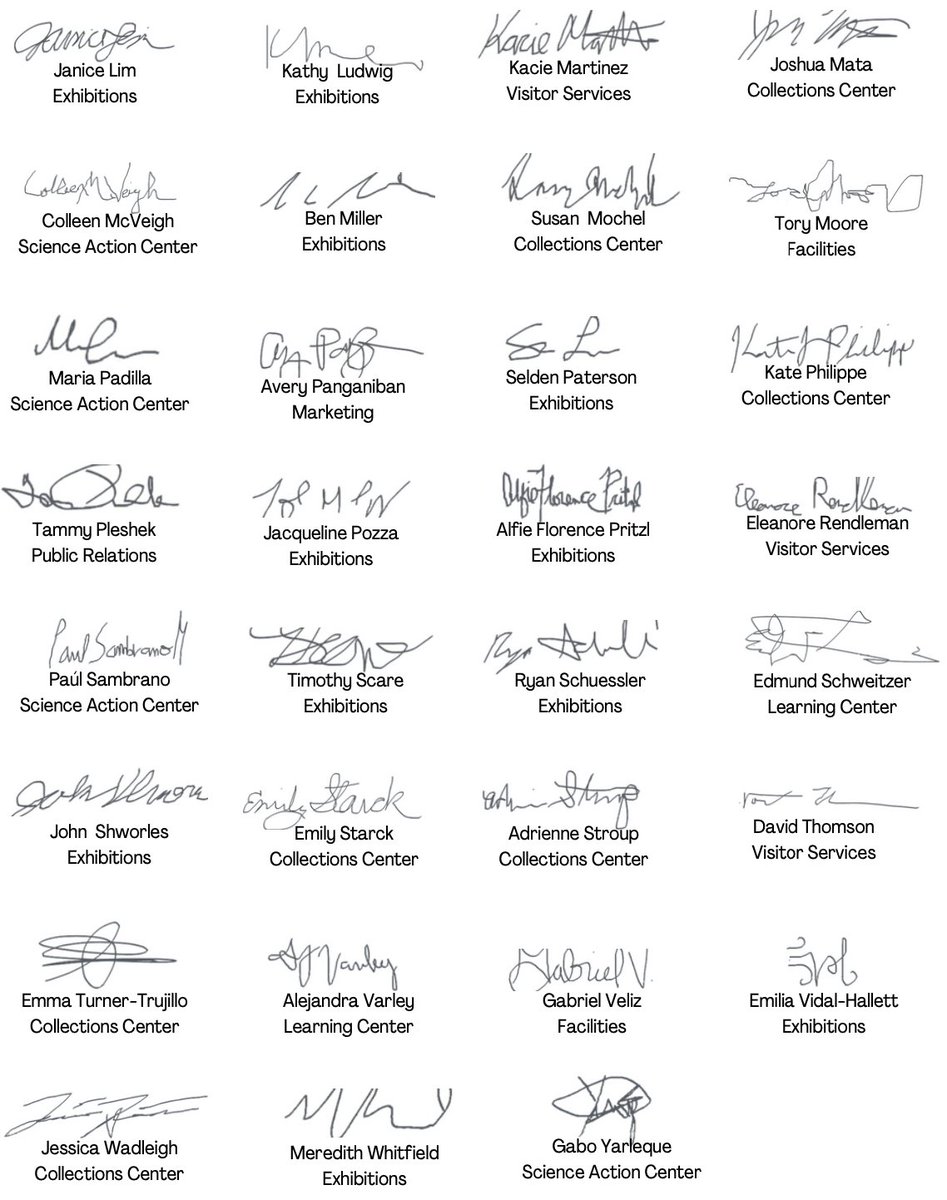 Janice Lim
Exhibitions
Kathy Ludwig
Exhibitions
Kacie Martinez
Visitor Services
Joshua Mata
Collections Center
Colleen McVeigh
Colleen McVeigh
Science Action Center
Ben Miller
Exhibitions
Susan Mochel
Collections Center
Tory Moore
Facilities
Maria Padilla
Science Action Center
Avery Panganiban
Marketing
Selden Paterson
Exhibitions
Kate Philippe
Collections Center
Tammy Pleshek
Public Relations
Jacqueline Pozza
Exhibitions
Alfie Florence Pritzl
Alfie Florence Pritzl
Exhibitions
Eleanore Rendleman
Eleanore Rendleman
Visitor Services
Paúl Sambrano
Science Action Center
Timothy Scare
Exhibitions
Ryan Schuessler
Exhibitions
Edmund Schweitzer
Learning Center
John Shworles
Exhibitions
Emily Starck
Emily Starck
Collections Center
Adrienne Stroup
Collections Center
David Thomson
Visitor Services
Emma Turner-Trujillo
Collections Center
AJ Varley
Alejandra Varley
Learning Center
Gabriel V.
Gabriel Veliz
Facilities
Emilia Vidal-Hallett
Exhibitions
Jessica Wadleigh
Collections Center
Meredith Whitfield
Exhibitions
Gabo Yarleque
Science Action Center